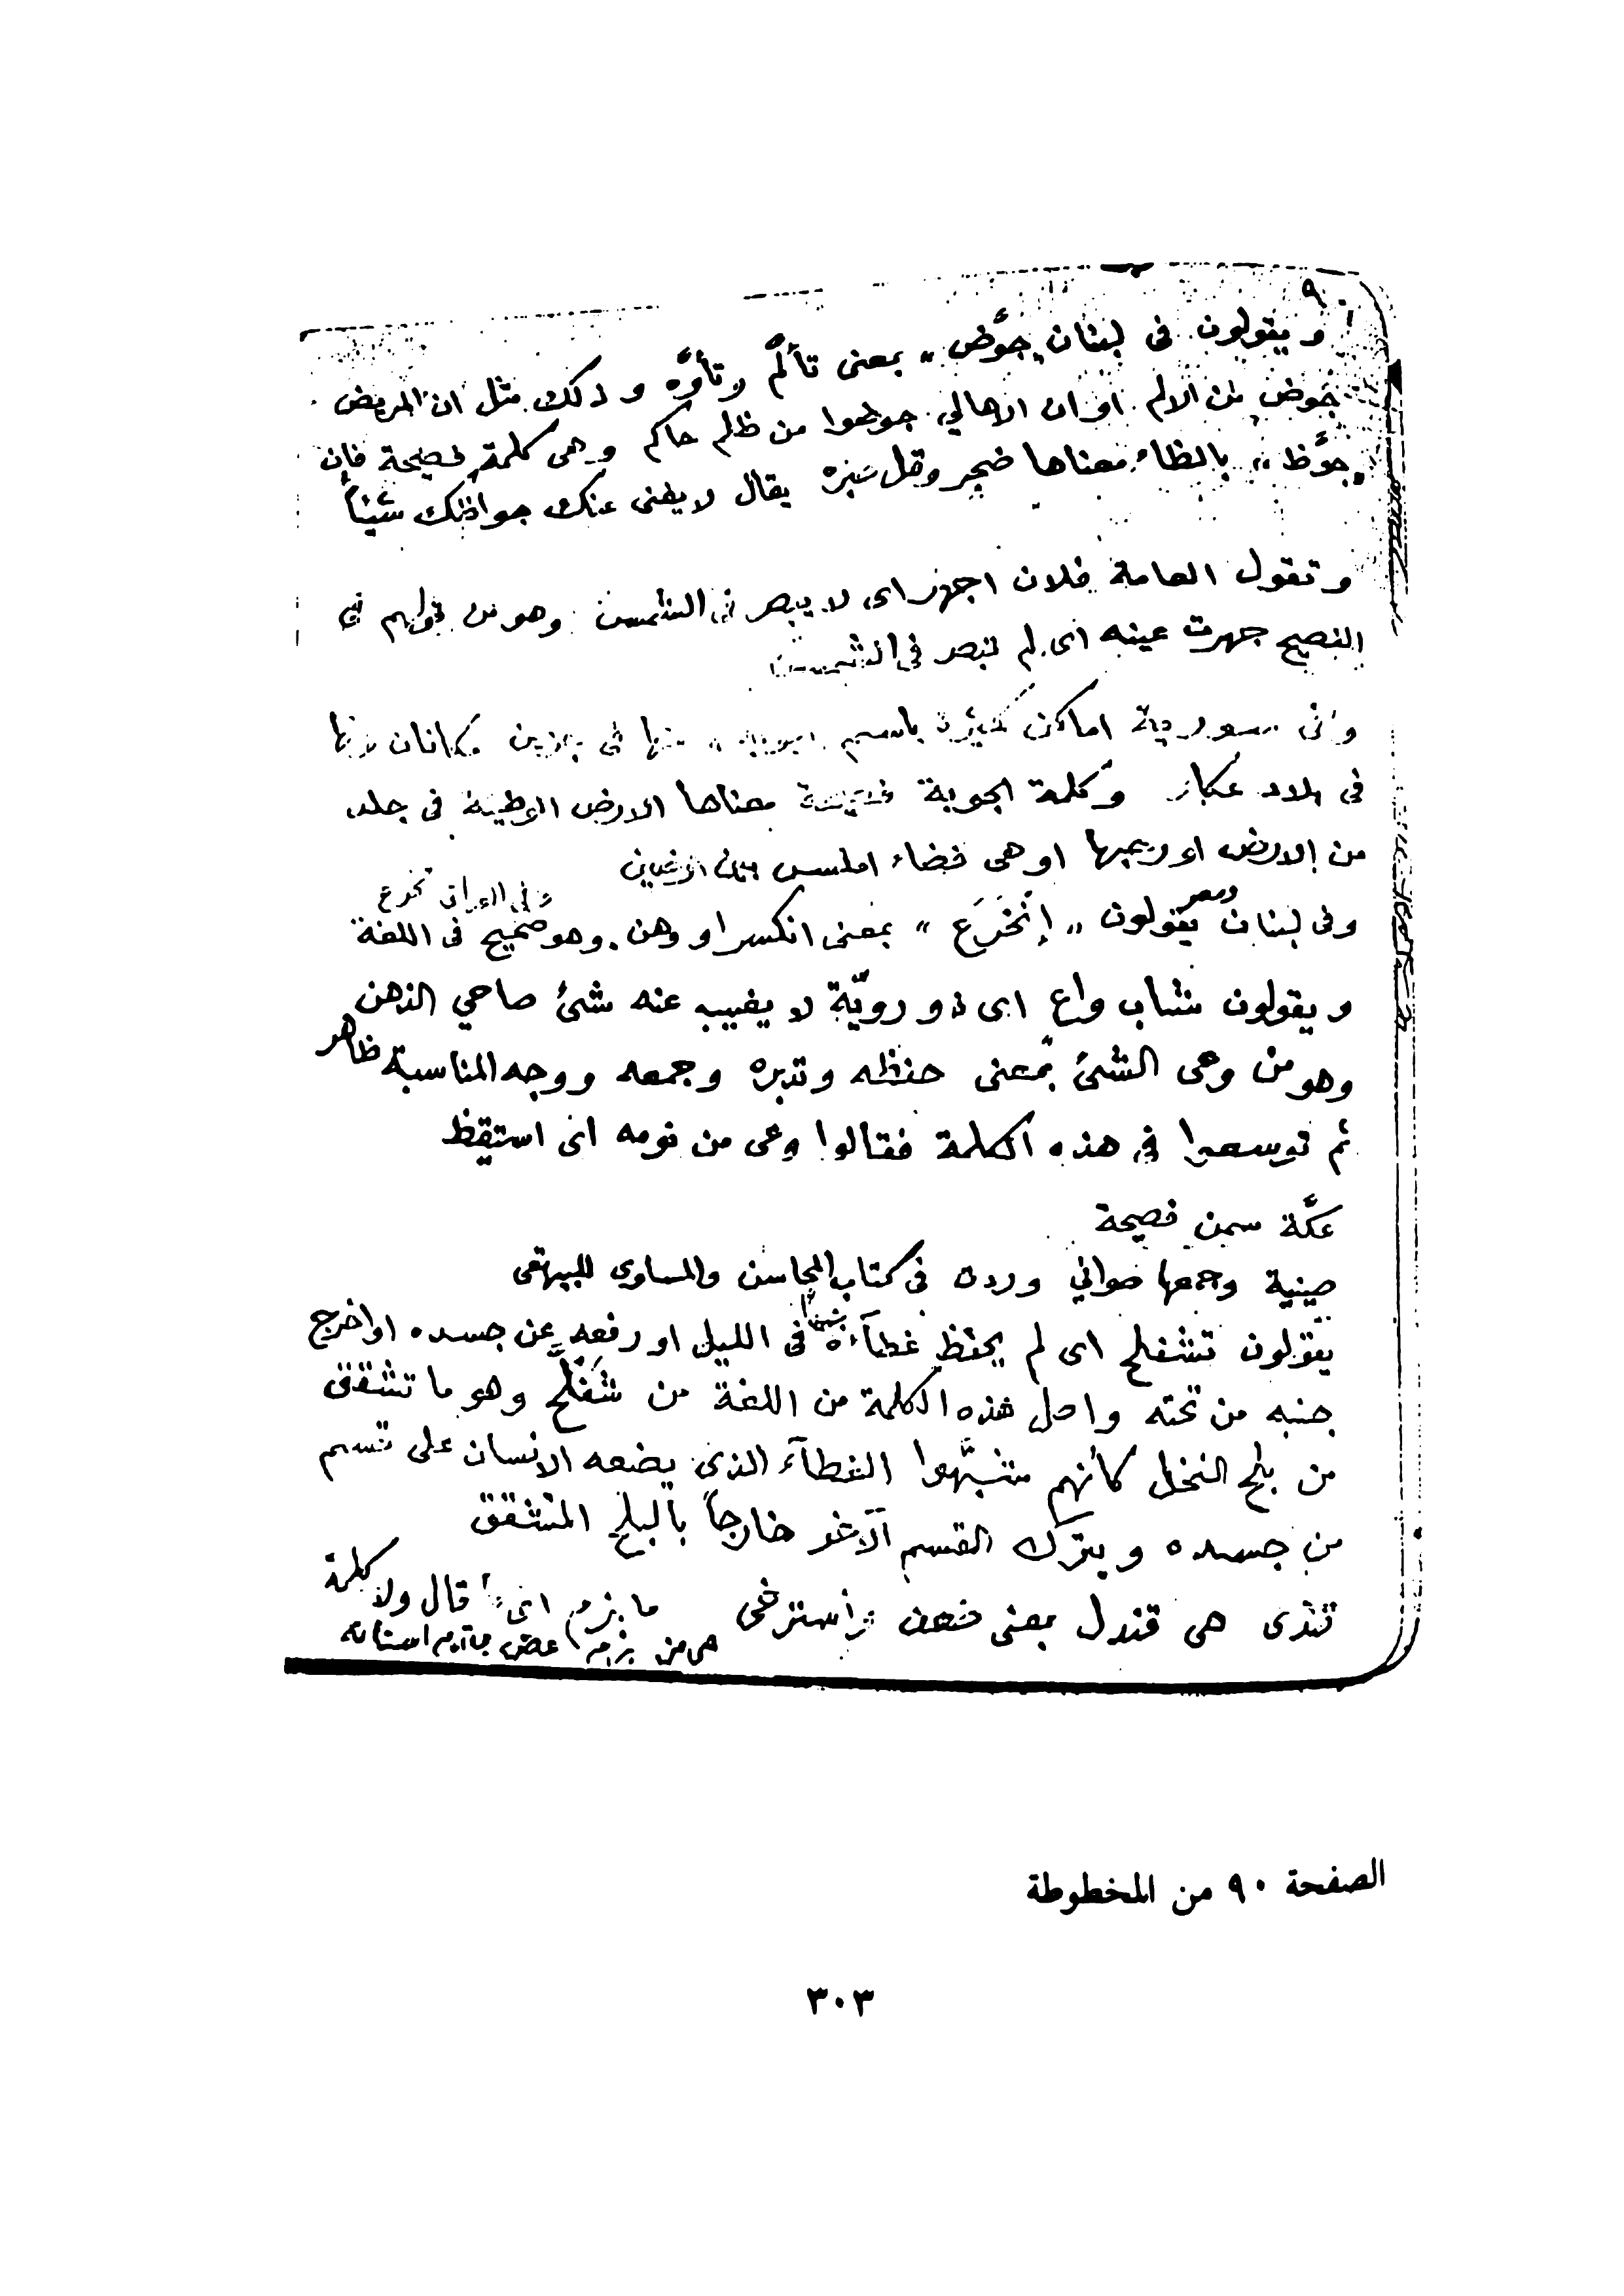 ٩٠
ويقولون فى لبنان „جوَّض„ بمعنى تألَّم وتأوَّه وذلك مثل ان المريض
جوض من الالم او ان الاهالي جوضوا من ظلم حاكم وهى كلمة فصيحة فإن
„جوَّظ„ بالظاء معناها ضجر وقل صبره يقال لا يغنى عنك جواظك شيئاً
وتقول العامة فلان اجهر اى لا يبصر فى الشمس وهو من قولهم فى
الفصيح جهرت عينه اى لم تبصر فى الشمس
وفى سورية اماكن كثيرة باسم منها فى جزين مكانان ومنها
فى بلاد عكار وكلمة الجوبة فصيحة معناها الارض الوطيئة فى جلد
من الارض او رحبها او هى فضاء املس بين ارضين
وفى لبنان ومصر يقولون „إنْخَرَع„ بمعنى انكسر او وهن. وهو صحيح فى اللغة
وفى العراق تخرع
ويقولون شاب واعٍ اى ذو رويّة لا يغيب عنه شئ صاحي الذهن
وهو من وعى الشئ بمعنى حفظه وتدبره وجمعه ووجه المناسبة ظاهر
ثم توسعوا فى هذه الكلمة فقالوا وعى من نومه اى استيقظ
عكَّة سمن فصيحة
صينية وجمعها صواني وردت فى كتاب المحاسن والمساوى للبيهقى
يقولون تشفلح اى لم يحفظ غطآءه فى الليل او رفعه عن جسده او اخرج
جنبه من تحته واصل هذه الكلمة من اللغة من شَفَلَّح وهو ما تشقق
من بلح النخل كأنهم شبَّهوا الغطآء الذى يضعه الانسان على قسم
من جسده ويترك القسم الآخر خارجاً بالبلح المتشقق
تندى هى قندل بمعنى ضعف واسترخى ما بزم اى ما قال ولا كلمة
هى من بزم عض بمقادم اسنانه
الصفحة ٩٠ من المخطوطة
٣٠٣